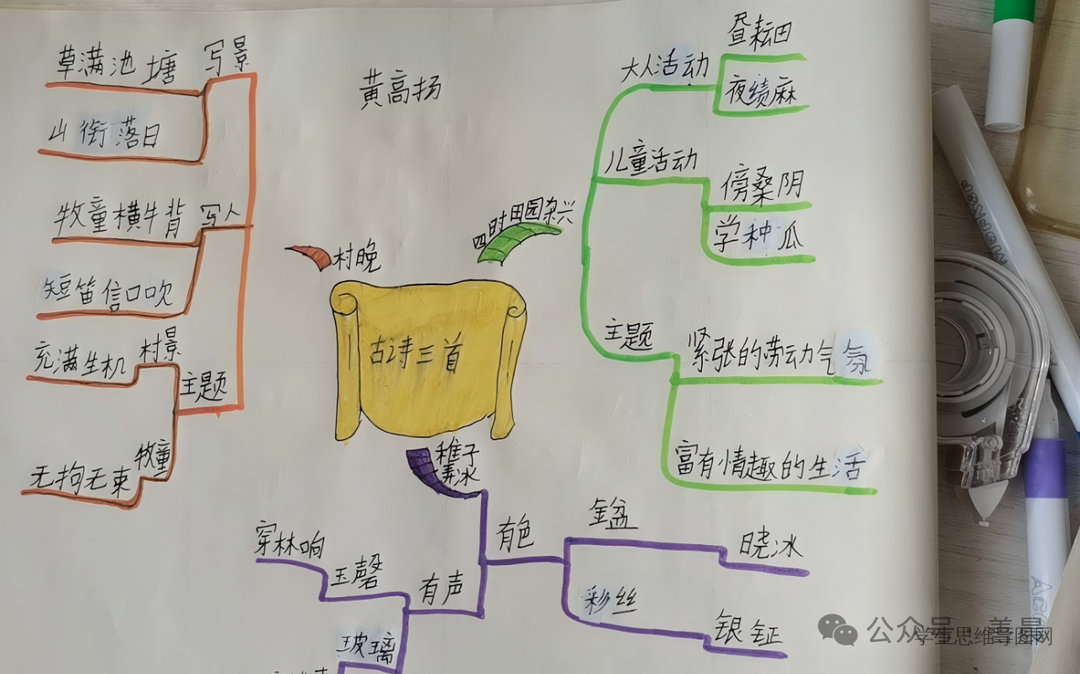 黄高扬
古诗三首
村晚
写景
草满池塘
山衔落日
写人
牧童横牛背
短笛信口吹
主题
村景
充满生机
牧童
无拘无束
四时田园杂兴
大人活动
昼耘田
夜绩麻
儿童活动
傍桑阴
学种瓜
主题
紧张的劳动气氛
富有情趣的生活
稚子
弄冰
有色
金盆
晓冰
彩丝
银钲
有声
玉磬
穿林响
玻璃
公众号
学生思维导图网